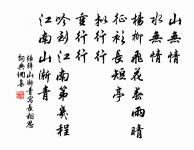 山無情
水無情
楊柳飛花春雨晴
征衫長短亭
擬行行
重行行
吟到江南第幾程
江南山漸青
張輯山漸青寓長相思
詞典網集